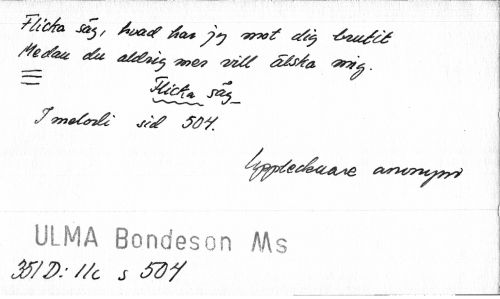 Flicka säg, hvad har jg mot dig brutit
Medan du aldrig mer vill älska mig.
Flicka säg
1 melodi sid 504.
Upptecknare anonym
ULMA Bondeson Ms
351 D: 11c s 504